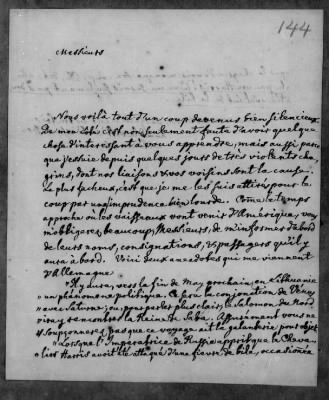 144
Messieurs
Nous voilà tout d'un coup devenus bien silencieux.
De mon côté c'est non seulement faute d'avoir quelque
chose d'intéressant à vous apprendre, mais aussi parce
que j'essuie depuis quelques jours de très violents cha-
grins, dont nos liaisons & vos voisins sont la cause.
Le plus facheux, c'est que je me les suis attirés pour le
coup par une imprudence bien lourde. Come le temps
approche où les vaisseaux vont venir d'Amérique, vous
m'obligerez, beaucoup, Messieurs, de m'informer d'abord
de leurs noms, consignations, & passagers qu'il y
aura à bord. Voici deux anecdotes qui me viennent
d'Allemagne
"Il y aura, vers la fin de May prochain, en Lithuanie
"un phénomene politique. Ce sera la conjonction de Vénus
"avec Saturne: ou, pour parler plus clair, le Salomon du Nord
"ira y rencontrer la Reine de Saba. Assurément vous ne
"soupçonnerez pas que ce voyage ait la galanterie pour objet
"Lorsque l'Imperatrice de Russie apprit que le Cheva-
"lier Harris avoit été attaqué d'une fievre de bile, occasionnée